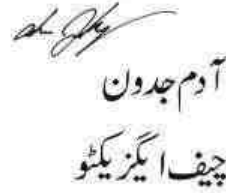 آدم جدون
چیف ایگزیکٹو